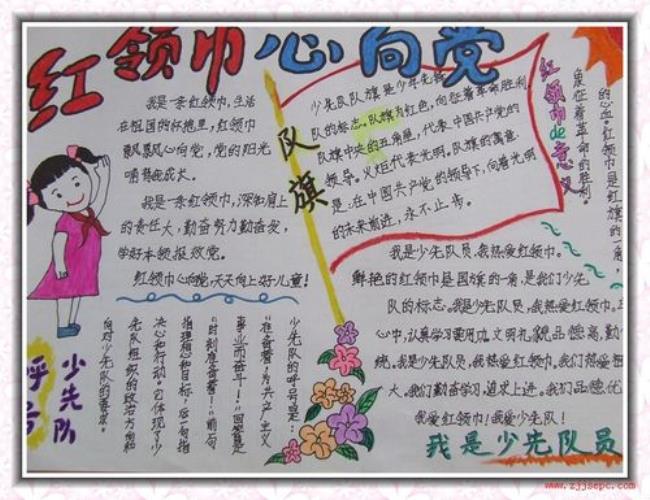 红领巾心向党
我是一条红领巾,生活
在祖国的怀抱里,红领巾
飘飘心向党,党的阳光
哺育我成长。
我是一条红领巾,深知肩上
的责任大,勤奋努力勤奋发,
学好本领报效党。
红领巾心向党,天天向上好儿童!
队旗
少先队队旗是少年先锋
队的标志。队旗为红色,向征着革命胜利,
队旗中央的五角星,代表中国共产党的
领导。火炬代表光明。队旗的寓意
是:在中国共产党的领导下,向着光明
的未来前进,永不止步。
红领巾de意义
的心血。红领巾是红旗的一角,
象征着革命的胜利。
我是少先队员,我热爱红领巾。
鲜艳的红领巾是国旗的一角,是我们少先
队的标志。我是少先队员,我热爱红领巾。
心中,认真学习要用功,文明礼貌品德高,勤
绕。我是少先队员,我热爱红领巾。我们热爱祖
大。我们勤奋学习,追求上进。我们品德优
我爱红领巾!我爱少先队!
我是少先队员
少先队
呼号
少先队的呼号是:
"准备着!为共产主义
事业而奋斗!"回答是
"时刻准备着!"前句
指理想和目标,后一句指
决心和行动。它体现了少
先队组织的政治方向和
党对少先队的要求。
www.zjjsepc.com